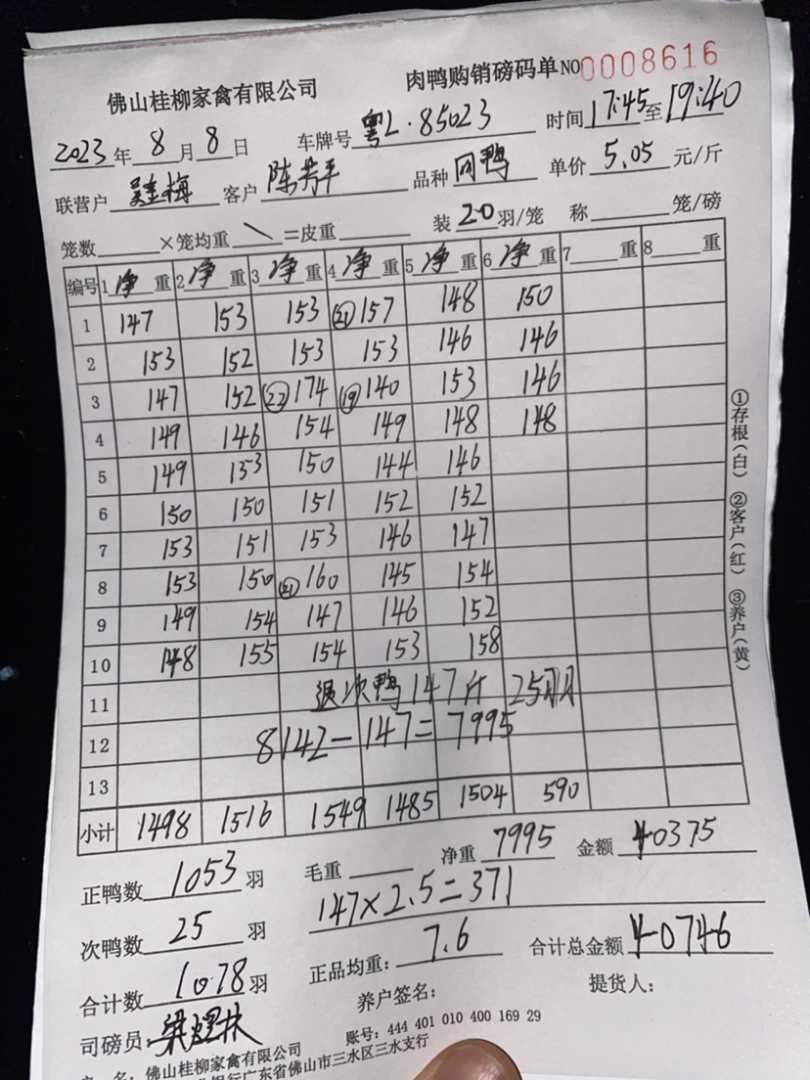 佛山桂柳家禽有限公司 肉鸭购销磅码单 NO0008616
2023年8月8日 车牌号 粤L·85023 时间 17:45至19:40
联营户 客户 陈芳平 品种 单价 5.05 元/斤
笼数 ×笼均重 \ =皮重 装 20 羽/笼 称 笼/磅
编号 1 净 重 2 净 重 3 净 重 4 净 重 5 净 重 6 净 重 7 重 8 重
1 147 153 153 (21) 157 148 150
2 153 152 153 153 146 146
3 147 152 (22) 174 (19) 140 153 146
4 149 146 154 149 148 148
5 149 153 150 144 146
6 150 150 151 152 152
7 153 151 153 146 147
8 153 150 (21) 160 145 154
9 149 154 147 146 152
10 148 155 154 153 158
11 退次鸭147斤 25羽
12 8142-147=7995
13
小计 1498 1516 1549 1485 1504 590
正鸭数 1053 羽 毛重 净重 7995 金额 40375
147×2.5=371
次鸭数 25 羽
正品均重: 7.6 合计总金额 40746
合计数 1078 羽
养户签名: 提货人:
司磅员:
账号: 444 401 010 400 169 29
户 名: 佛山桂柳家禽有限公司
银行广东省佛山市三水区三水支行
①存根(白) ②客户(红) ③养户(黄)